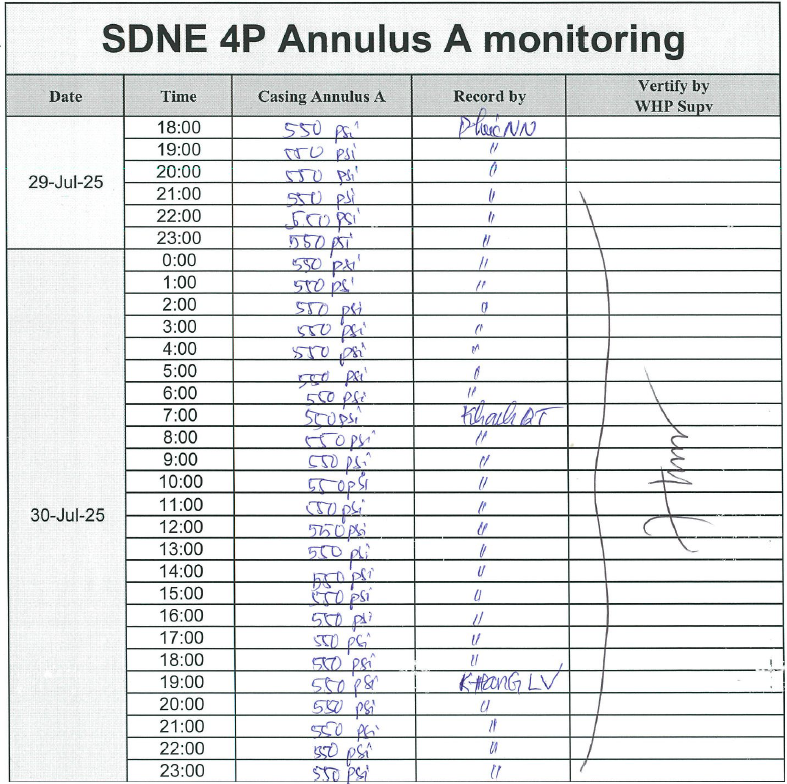 SDNE 4P Annulus A monitoring
Date Time Casing Annulus A Record by Vertify by
WHP Supv
29-Jul-25
18:00 550 psi PhúcNN
19:00 550 psi "
20:00 550 psi "
21:00 550 psi "
22:00 550 psi "
23:00 550 psi "
30-Jul-25
0:00 550 psi "
1:00 550 psi "
2:00 550 psi "
3:00 550 psi "
4:00 550 psi "
5:00 550 psi "
6:00 550 psi "
7:00 550 psi Khanh ĐT
8:00 550 psi "
9:00 550 psi "
10:00 550 psi "
11:00 550 psi "
12:00 550 psi "
13:00 550 psi "
14:00 550 psi "
15:00 550 psi "
16:00 550 psi "
17:00 550 psi "
18:00 550 psi "
19:00 550 psi KHANG LV
20:00 550 psi "
21:00 550 psi "
22:00 550 psi "
23:00 550 psi "